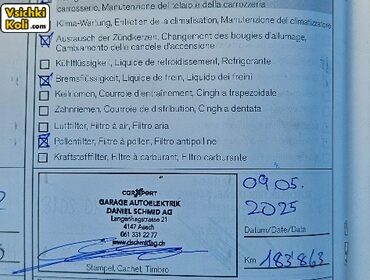 Vsichki
Koli.com
carrosserie, Manutenzione del telaio e della carrozzeria
Klima-Wartung, Entretien de la climatisation, Manutenzione del climatizzatore
Austausch der Zündkerzen, Changement des bougies d'allumage,
Cambiamento delle candele d'accensione
Kühlflüssigkeit, Liquide de refroidissement, Refrigerante
Bremsflüssigkeit, Liquide de frein, Liquido dei freini
Keilriemen, Courroie d'entraînement, Cinghia trapezoidale
Zahnriemen, Courroie de distribution, Cinghia dentata
Luftfilter, Filtre à air, Filtro aria
Pollenfilter, Filtre à pollen, Filtro antipolline
Kraftstofffilter, Filtre à carburant, Filtro carburante
carXpert
GARAGE AUTOELEKTRIK
DANIEL SCHMID AG
Langenhagstrasse 21
4147 Aesch
061 331 22 77
www.dschmidag.ch
Stempel, Cachet, Timbro
09.05.
2025
Datum/Date/Data
Km 183863